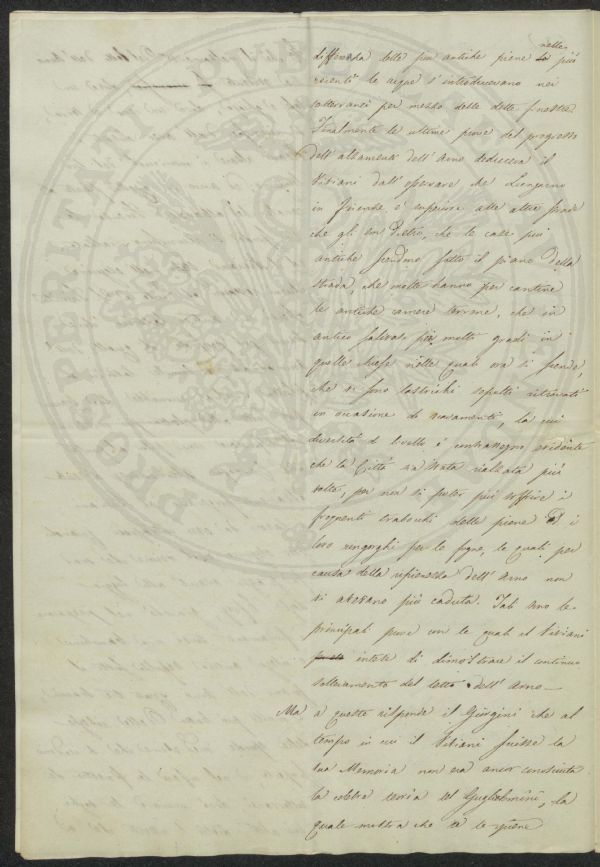 nelle
differenza delle più antiche piene le più
recenti le acque s'introducevano nei
sotterranei per mezzo delle dette finestre.
Finalmente le ultime prove del progresso
dell'alzamento dell'Arno deduceva il
Viviani dall'osservare che Lungarno
in Firenze è
che le case più
antiche scendono sotto il piano della
strada, che molte hanno per cantine
le antiche camere terrene, che in
antico salivasi più molti gradi in
quelle chiese nelle quali ora si scende,
che si sono lastrichi sepolti ritrovati
in occasione di scavamenti, la cui
diversità di livello è contrassegno evidente
che la Città sia stata rialzata più
volte, per non si poter più soffrire i
frequenti trabocchi delle piene e i
loro ringorghi per le fogne, le quali per
causa della ripienezza dell'Arno non
vi avevano più caduta. Tali sono le
principali prove con le quali il Viviani
intese di dimostrare il continuo
sollevamento del letto dell'Arno —
Ma a queste risponde il Giorgini che al
tempo in cui il Viviani scrisse la
sua Memoria non era ancor conosciuta
la celebre teoria del Guglielmini, la
quale mostra che se le piene
PROSPERITATI